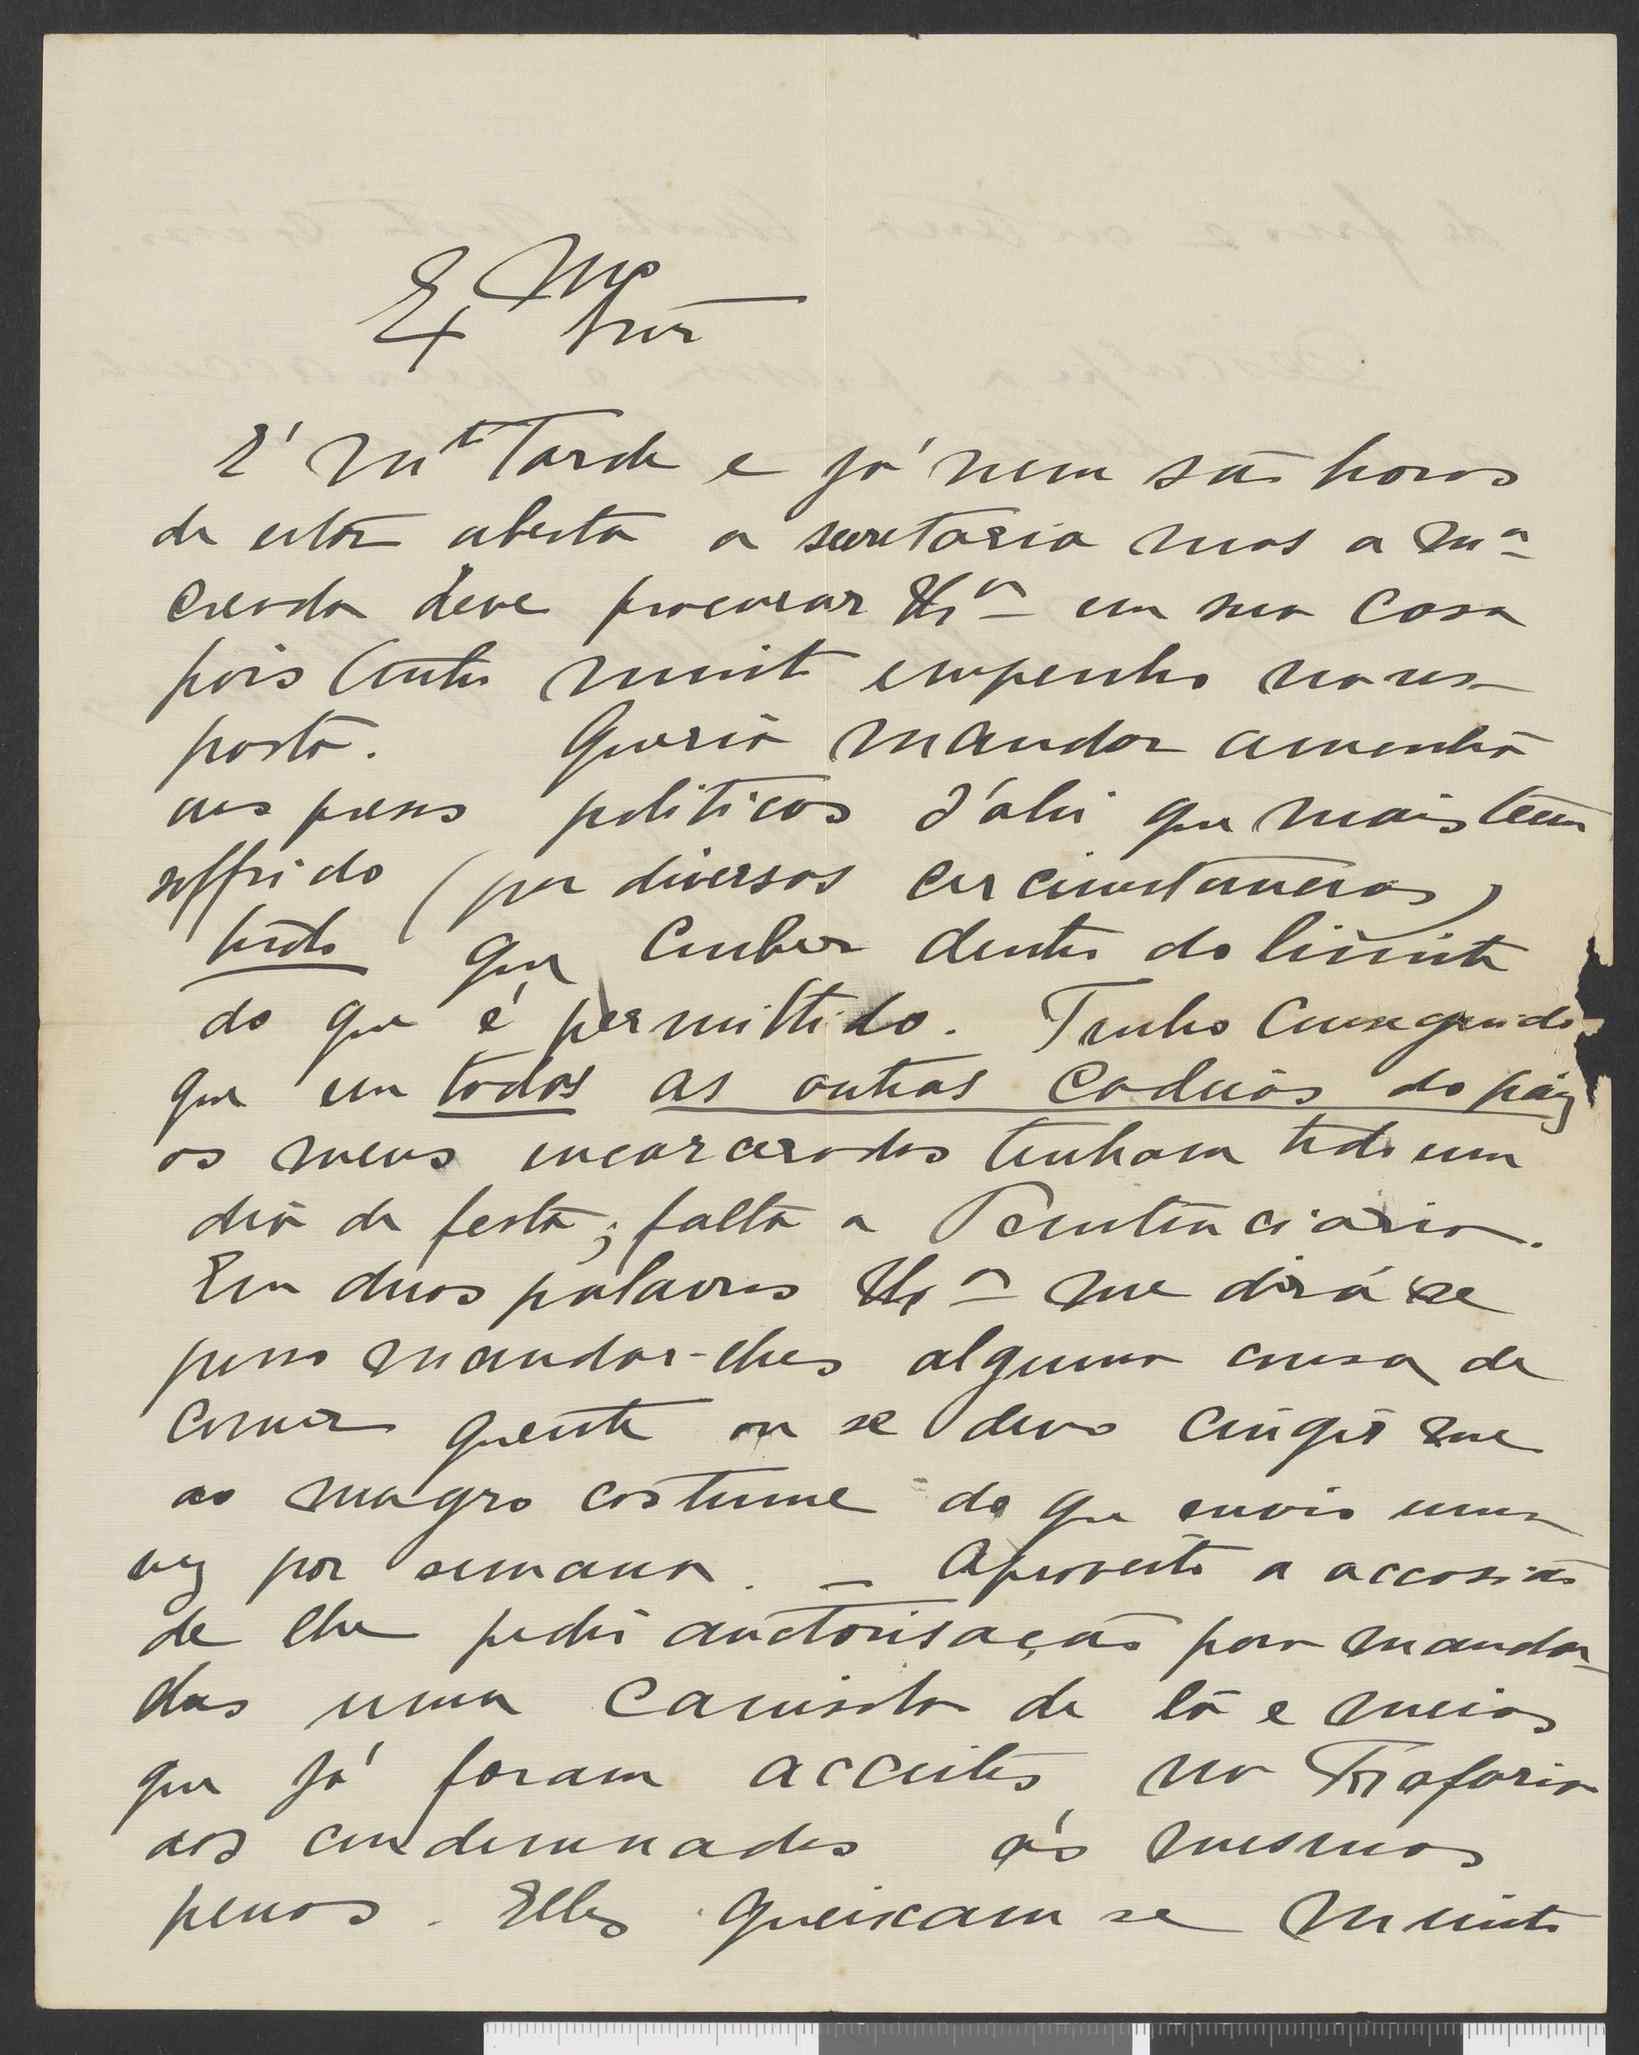 Exmo Snr
É mto tarde e já nem são horas
de estar aberta a secretaria mas a ma
creada deve procurar V. Exa em sua casa
pois tenho muito empenho na res-
posta. Queria mandar amanhã
aos presos politicos d'ahi que mais teem
soffrido (por diversas circumstancias)
tudo que couber dentro do limite
do que é permittido. Tenho conseguido
que em todas as outras cadeias do paiz
os meus encarcerados tenham tido um
dia de festa; falta a Penitenciaria.
Em duas palavras V. Exa me dirá se
posso mandar-lhes alguma cousa de
comer quente ou se devo cingir me
ao magro costume do que envio uma
vez por semana. — Aproveito a occasião
de lhe pedir auctorisação para mandar-
lhes uma camisola de lã e meias
que já foram acceites na Trafaria
aos condemnados ás mesmas
penas. Elles queixam se muito